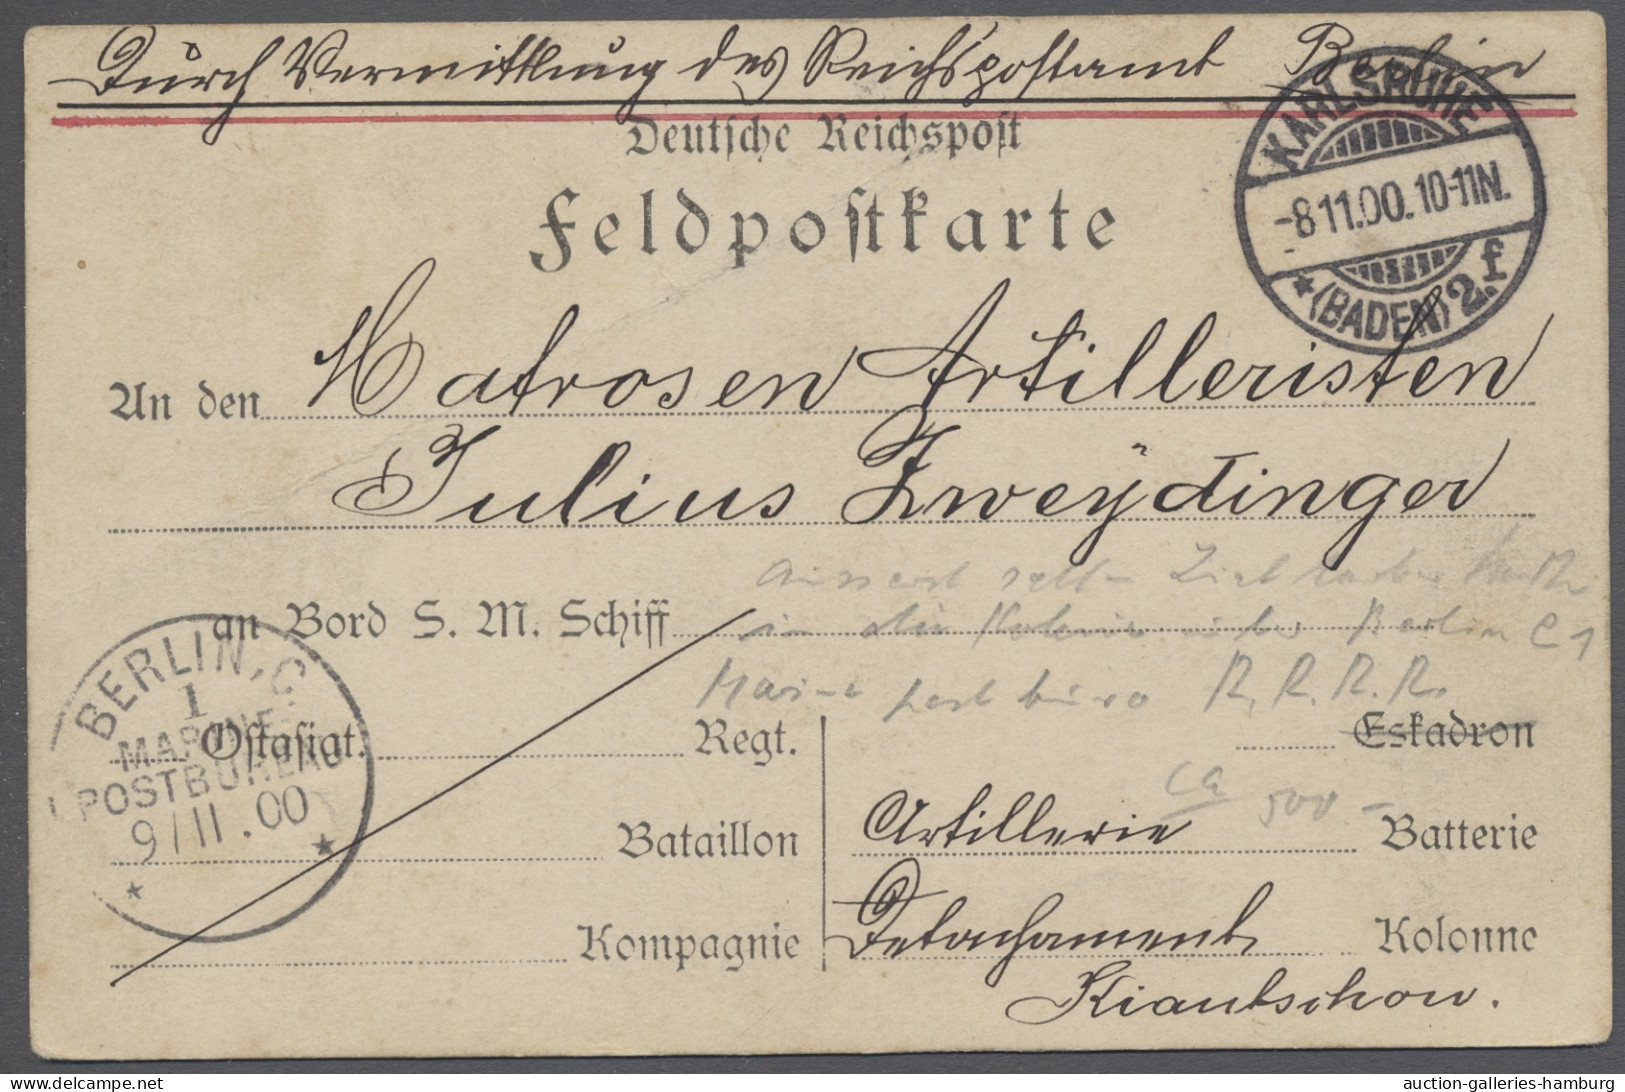 Durch Vermittlung des Reichspostamt Berlin
Deutsche Reichspost
Feldpostkarte
KARLSRUHE
-8 11.00. 10-11N.
* (BADEN) 2.f
An den Matrosen Artilleristen
Julius Zweÿdinger
an Bord S. M. Schiff
in die Berlin C 1
Marine postbüro R. R. R. R.
BERLIN, C
1
MARINE-
POSTBUREAU
9/11.00
Ostasiat. Regt. Eskadron
ca 500 -
Bataillon Artillerie Batterie
Kompagnie Detachament Kolonne
Kiautschou.
auction-galleries-hamburg